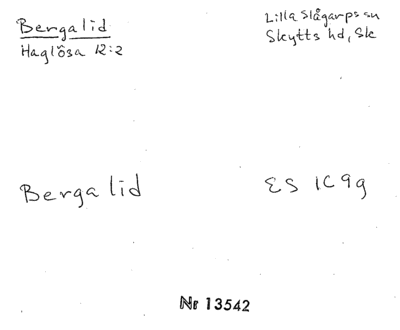 Bergalid
Haglösa 12:2
Lilla Slågarps sn
Skytts hd, Sk
Bergalid
ES 1C9g
Nr 13542